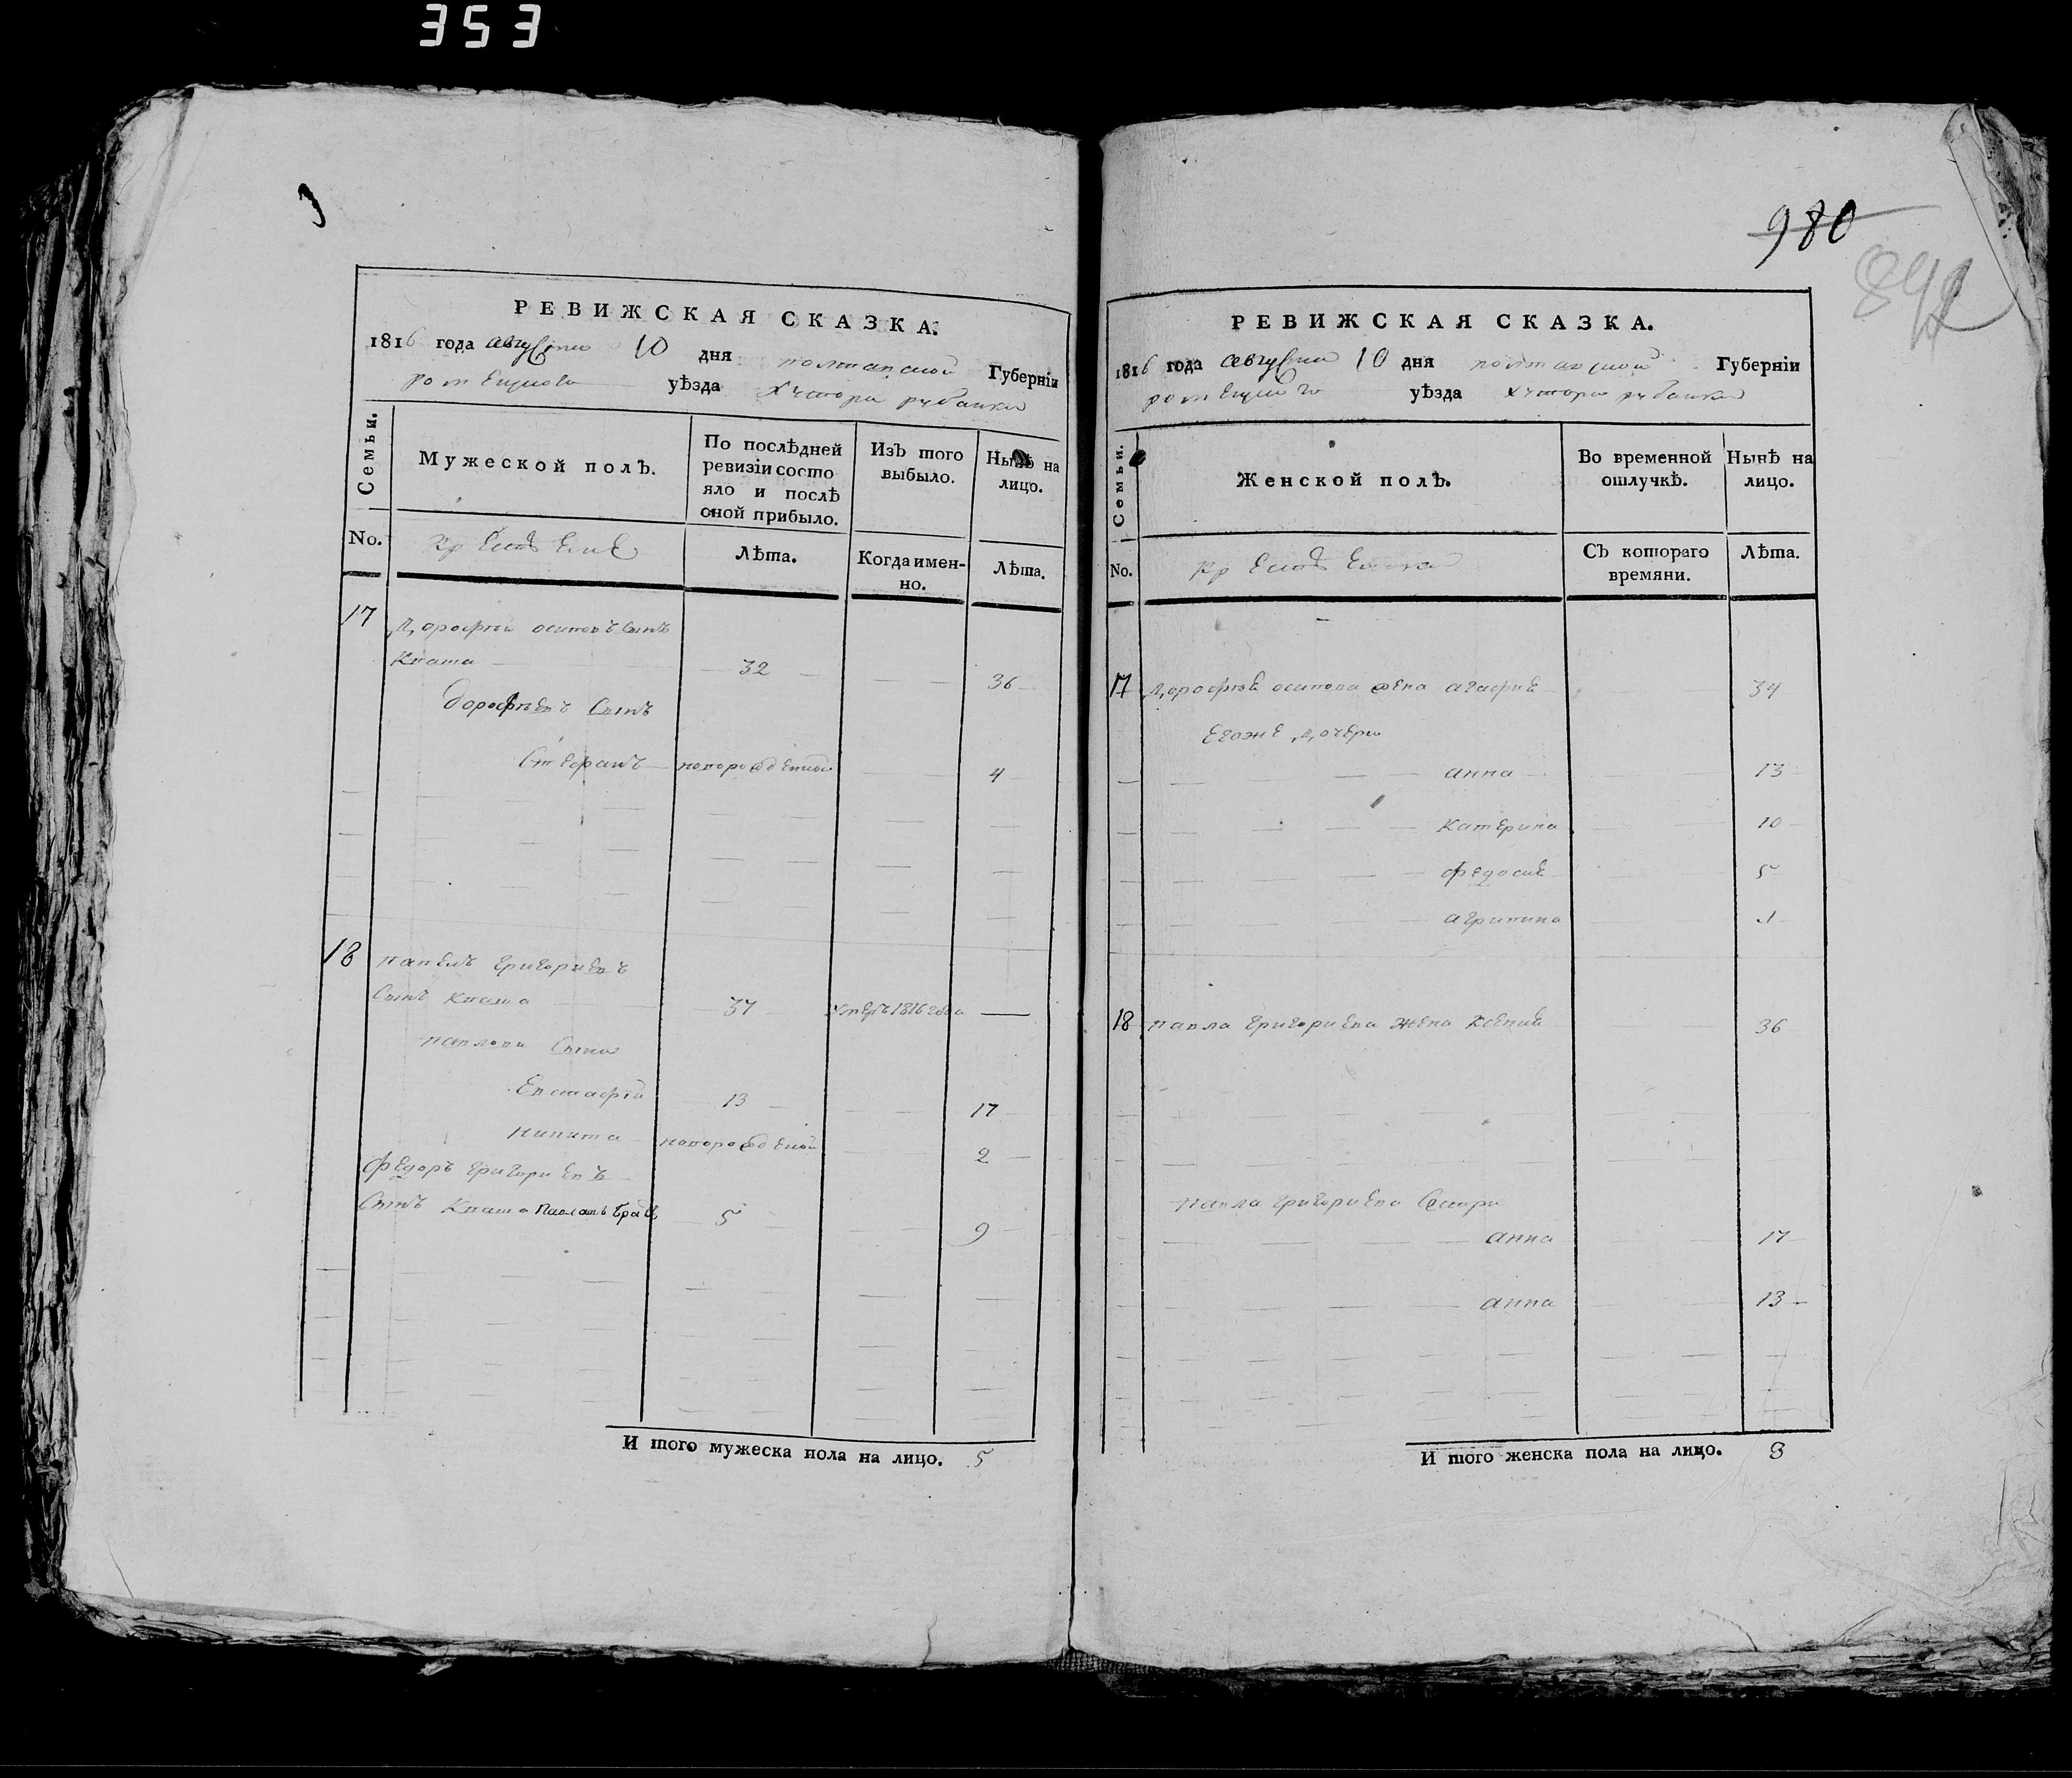 353
РЕВИЖСКАЯ СКАЗКА.
1816 года августа 10 дня полтавской Губерніи
роменского уѣзда хутора рубанки
Семьи.
Мужеской полъ.
По послѣдней ревизіи состо
яло и послѣ
оной прибыло.
Изъ того
выбыло.
Нынѣ на
лицо.
No.
Лѣта.
Когда имен-
но.
Лѣта.
17 Дорофѣй осиповъ сынъ
Кваша 32 36
дорофѣевъ сынъ
Стефанъ новорожденной 4
18 павелъ григориевъ
сынъ кваша 37 умеръ 1816 года
павловы сыны
Евстафій 13 17
никита новорожденой 2
федоръ григориевъ
сынъ кваша Павлавъ братъ 5 9
И того мужеска пола на лицо. 5
980
892
РЕВИЖСКАЯ СКАЗКА.
1816 года августа 10 дня полтавской Губерніи
роменского уѣзда хутора рубанки
Семьи.
Женской полъ.
Во временной
отлучкѣ.
Нынѣ на
лицо.
No.
Съ котораго
времяни.
Лѣта.
17 Дорофѣя осипова жена агафия 34
Егоже дочери
анна 13
катерина 10
федосия 5
агрипина 1
18 павла григориева жена ксения 36
павла григориева сестры
анна 17
анна 13
И того женска пола на лицо. 8